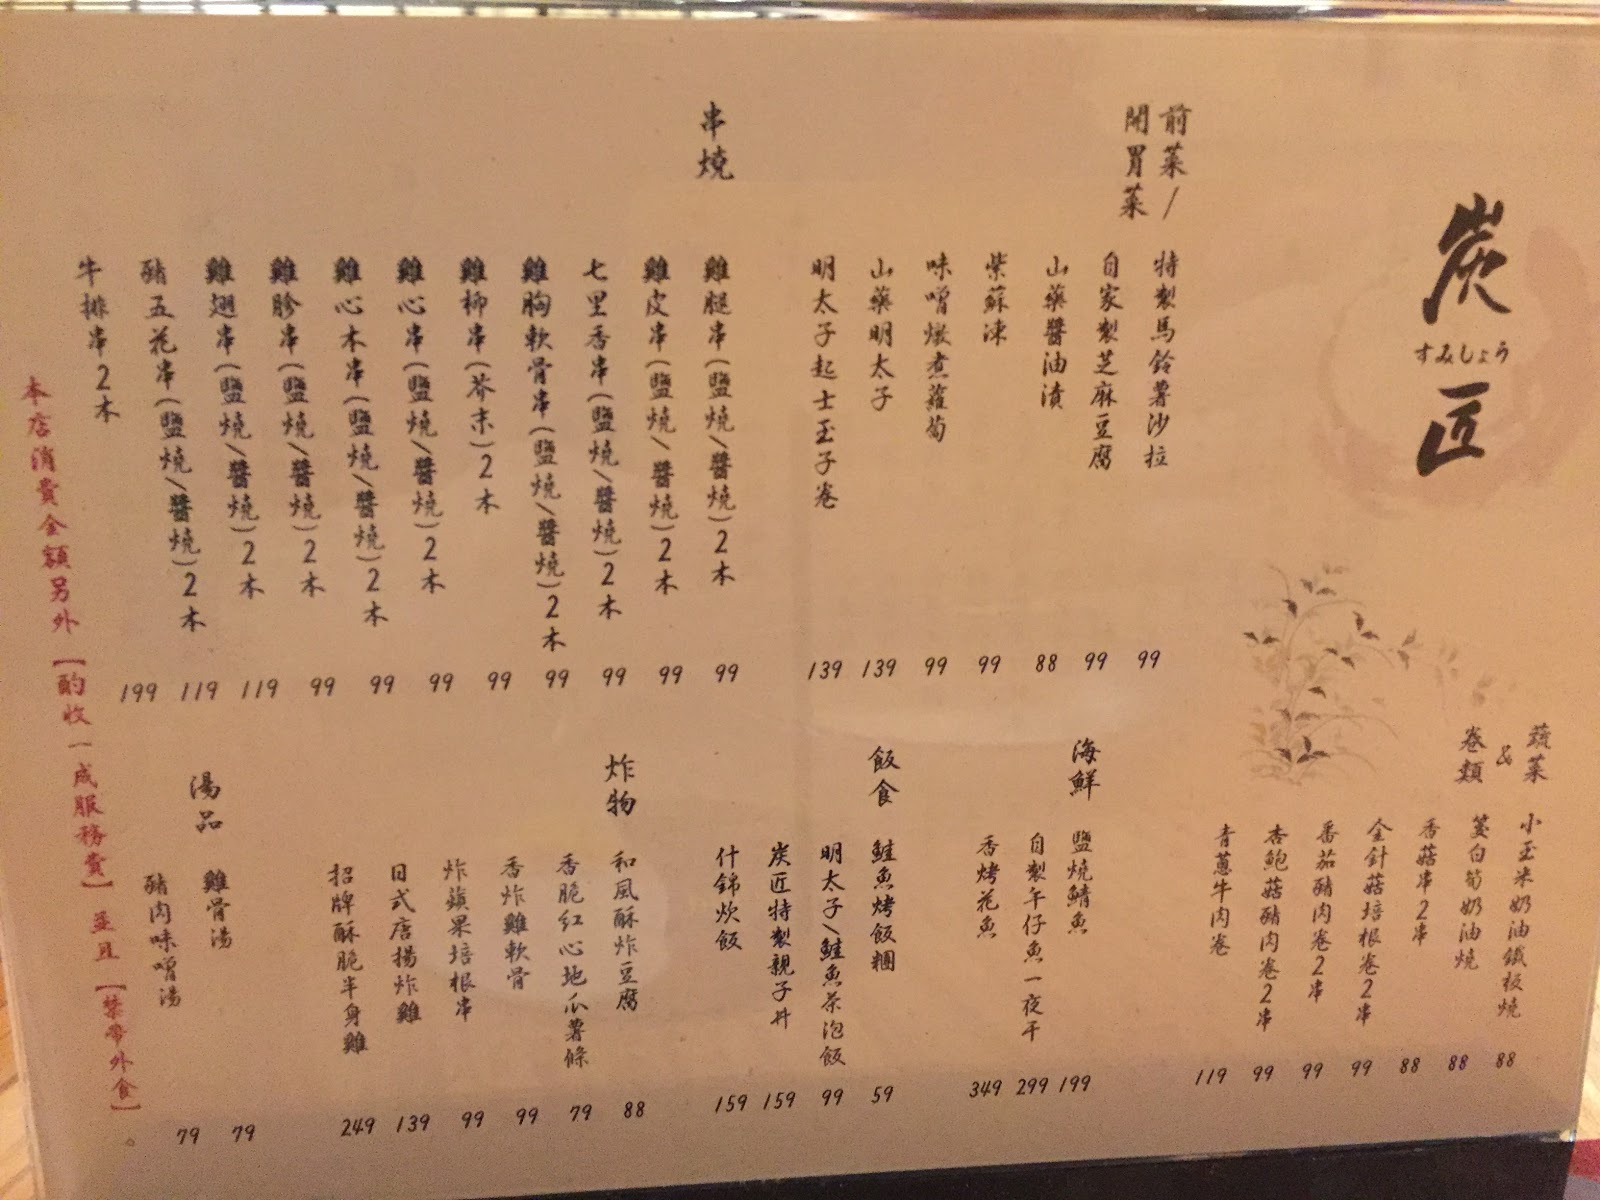 炭匠
すみしょう
前菜/
開胃菜
特製馬鈴薯沙拉 99
自家製芝麻豆腐 99
山藥醬油漬 88
紫蘇凍 99
味噌燉煮蘿蔔 99
山藥明太子 139
明太子起士玉子卷 139
串燒
雞腿串(鹽燒/醬燒)2木 99
雞皮串(鹽燒/醬燒)2木 99
七里香串(鹽燒/醬燒)2木 99
雞胸軟骨串(鹽燒/醬燒)2木 99
雞柳串(芥末)2木 99
雞心串(鹽燒/醬燒)2木 99
雞心本串(鹽燒/醬燒)2木 99
雞胗串(鹽燒/醬燒)2木 99
雞翅串(鹽燒/醬燒)2木 119
豬五花串(鹽燒/醬燒)2木 119
牛排串2木 199
蔬菜
&
卷類
小玉米奶油鐵板燒 88
茭白筍奶油燒 88
香菇串2串 88
金針菇培根卷2串 99
番茄豬肉卷2串 99
杏鮑菇豬肉卷2串 99
青蔥牛肉卷 119
海鮮
鹽燒鯖魚 199
自製午仔魚一夜干 299
香烤花魚 349
飯食
鮭魚烤飯糰 59
明太子/鮭魚茶泡飯 99
炭匠特製親子丼 159
什錦炊飯 159
炸物
和風酥炸豆腐 88
香脆紅心地瓜薯條 79
香炸雞軟骨 99
炸蘋果培根串 99
日式唐揚炸雞 139
招牌酥脆半身雞 249
湯品
雞骨湯 79
豬肉味噌湯 79
本店消費金額另外【酌收一成服務費】並且【禁帶外食】。